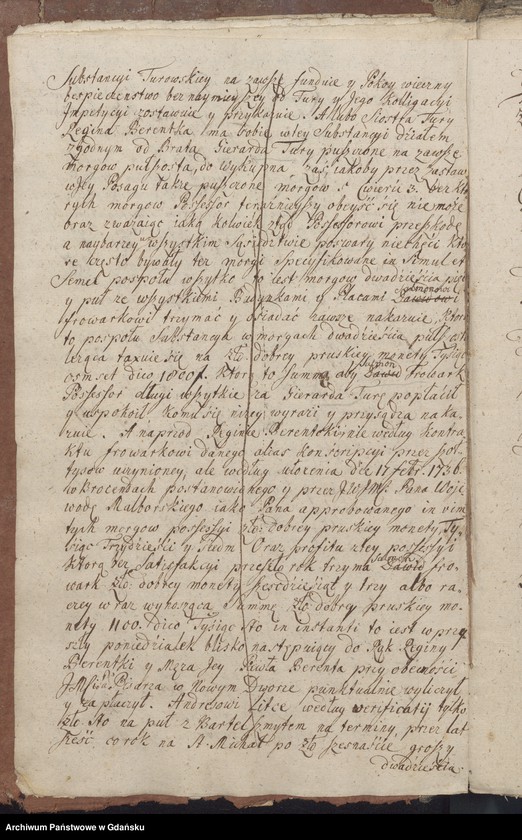 Substancyi Turowskiey na zawsze funduie y Pokoy wieczny
bespieczenstwo bez naymnieyszey od Tury y Jego Kolligacyi
Impetycyi zostawuie y przykazuie. A lubo Siostra Tury
Regina Berentka ma sobie w tey Substancyi działem
zgodnym od Brata Gierarda Tury puszczone na zawsze
morgow pułposta, do wykupna zaś jakoby przez zastaw
w Jey Posagu także puszczone morgow 5 cwierci 3. bez kto
rych morgow Possessor teraznieyszy obeyść się nie może
oraz zwazaiąc jaką kolwiek ztąd Possessorowi przeszkodę
a naybarzey w wszystkim Sąsiedztwie poswary niechęci kto
re często bywały też morgi specyfikowane in Simul et
Semel pospołu wszytko to iest morgow dwadzieścia pięć
y puł ze wszystkiemi Budynkami y Placami Dawidowi Salmonowi
frowarkowi trzymać y osiadać zawsze nakazuie. Ktora
to pospołu Substancya w morgach dwadzieścia pułosta
lezgca taxuie się na zło: dobrey pruskiey monety Tysiąc
osm set dico 1800 f. Ktorą to Summą aby Dawid Salmon frowark
Possessor długi wszytkie za Gierarda Turę popłacił
y uspokoił komu się niżey wyrazi y przysądza naka
zuie. A naprzod Reginie Berentokiwnie według kontra
ktu frowarkowi danego alias konskrypcyi przez Soł
tysow uczynioney, ale według ułożenia die 17 febr: 1736
w Procentach postanowionego y przez JWJMci Pana Woje
wodę Malborskiego iako Pana approbowanego in vim
tych morgow possessyi zło: dobrey pruskiey monety Ty
siąc Trzydzieści y Siedm Oraz profitu z tey possessyi
ktorą bez Satisfakcyi przeszło rok trzyma Dawid Salmon fro
wark zło: dobrey monety szescdziesiąt y trzy albo ra
czey w raz wynoszącą Summę zło: dobrey pruskiey mo
nety 1100. dico Tysiąc sto in instanti to iest w przy
szły poniedziałek blisko następuiący do Rąk Reginy
Berentki y Męza Jey Pawła Berenta przy obecności
JMści Pana Pisarza w Nowym Dworze punktualnie wyliczył
y zapłacił. Andresowi Litce według weryfikatij tylko
zło: sto na puł z Bartel Szmytem na terminy, przez lat
szesć co rok na S. Michał po zło szesnaście groszy
dwadzieścia
Archiwum Państwowe w Gdańsku